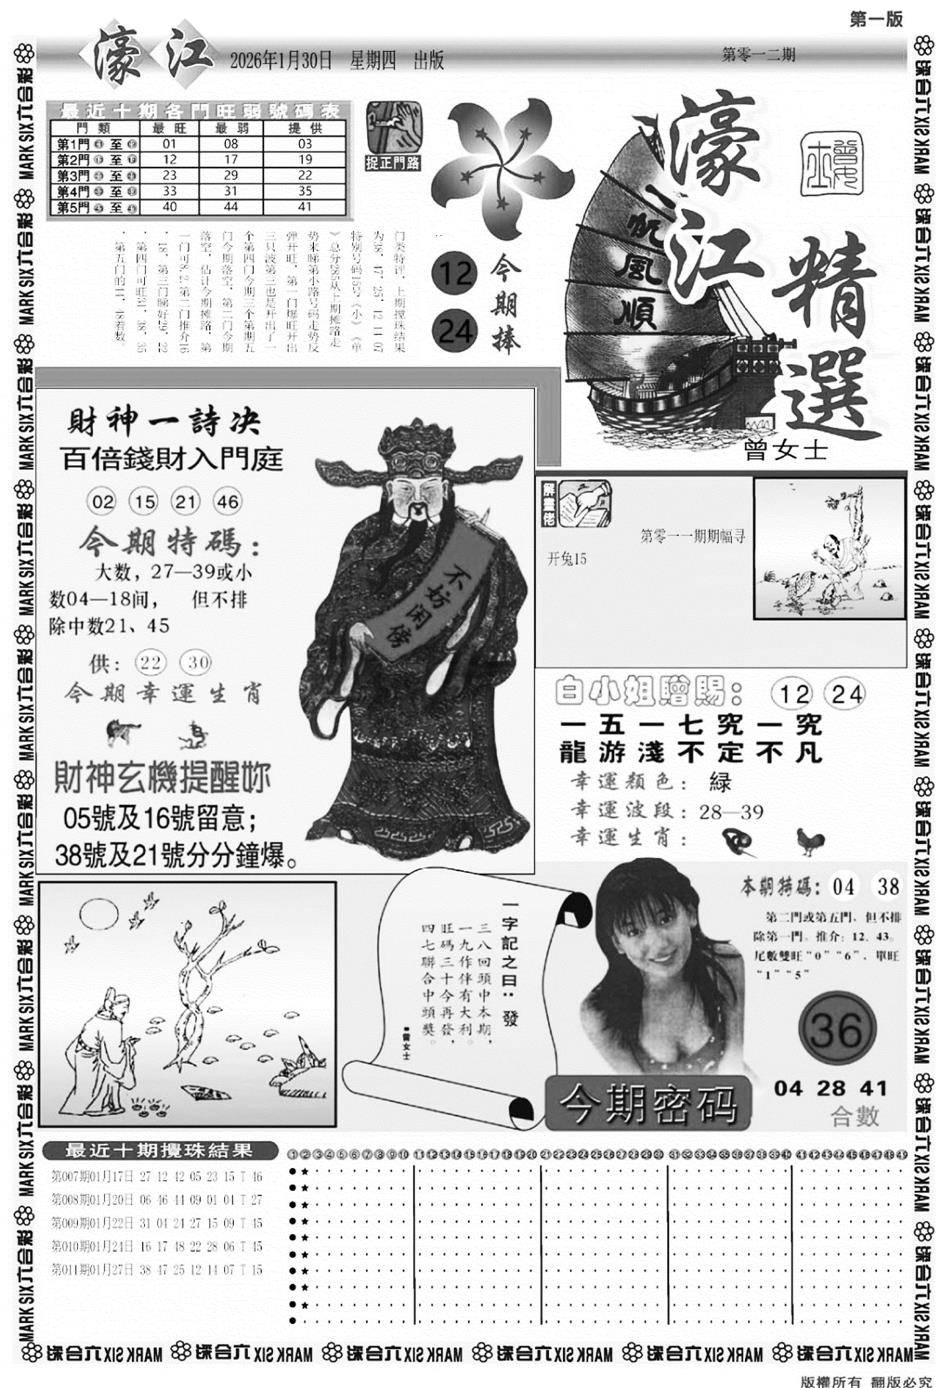 第一版
濠江
2026年1月30日 星期四 出版
第零一二期
最近十期各門旺弱號碼表
門類 最旺 最弱 提供
第1門 至 01 08 03
第2門 至 12 17 19
第3門 至 23 29 22
第4門 至 33 31 35
第5門 至 40 44 41
捉正門路
12
24
今期捧
一帆風順
濠江精選
曾女士
财神一詩决
百倍錢財入門庭
02 15 21 46
今期特碼：
大数，27—39或小
数04—18间， 但不排
除中数21、45
供：22 30
今期幸運生肖
財神玄機提醒妳
05號及16號留意；
38號及21號分分鐘爆。
不妨闲傍
解畫佬
第零一一期期幅寻
开兔15
白小姐贈賜：12 24
一五一七究一究
龍游淺不定不凡
幸運顏色：緑
幸運波段：28—39
幸運生肖：
一字記之曰：發
三八回頭中本期，
一九作伴有大利。
旺碼三十今再發，
四七聯合中頭獎。
●曾女士
今期密码
本期特碼：04 38
第二門或第五門。但不排
除第一門。推介：12、43。
尾數雙旺“0”“6”、單旺
“1”“5”
36
04 28 41
合數
最近十期攪珠結果
第007期01月17日 27 12 42 05 23 15 T 46
第008期01月20日 06 46 44 09 01 04 T 27
第009期01月22日 31 04 24 27 15 09 T 45
第010期01月24日 16 17 48 22 28 06 T 45
第011期01月27日 38 47 25 12 14 07 T 15
MARK SIX六合彩
版權所有 翻版必究